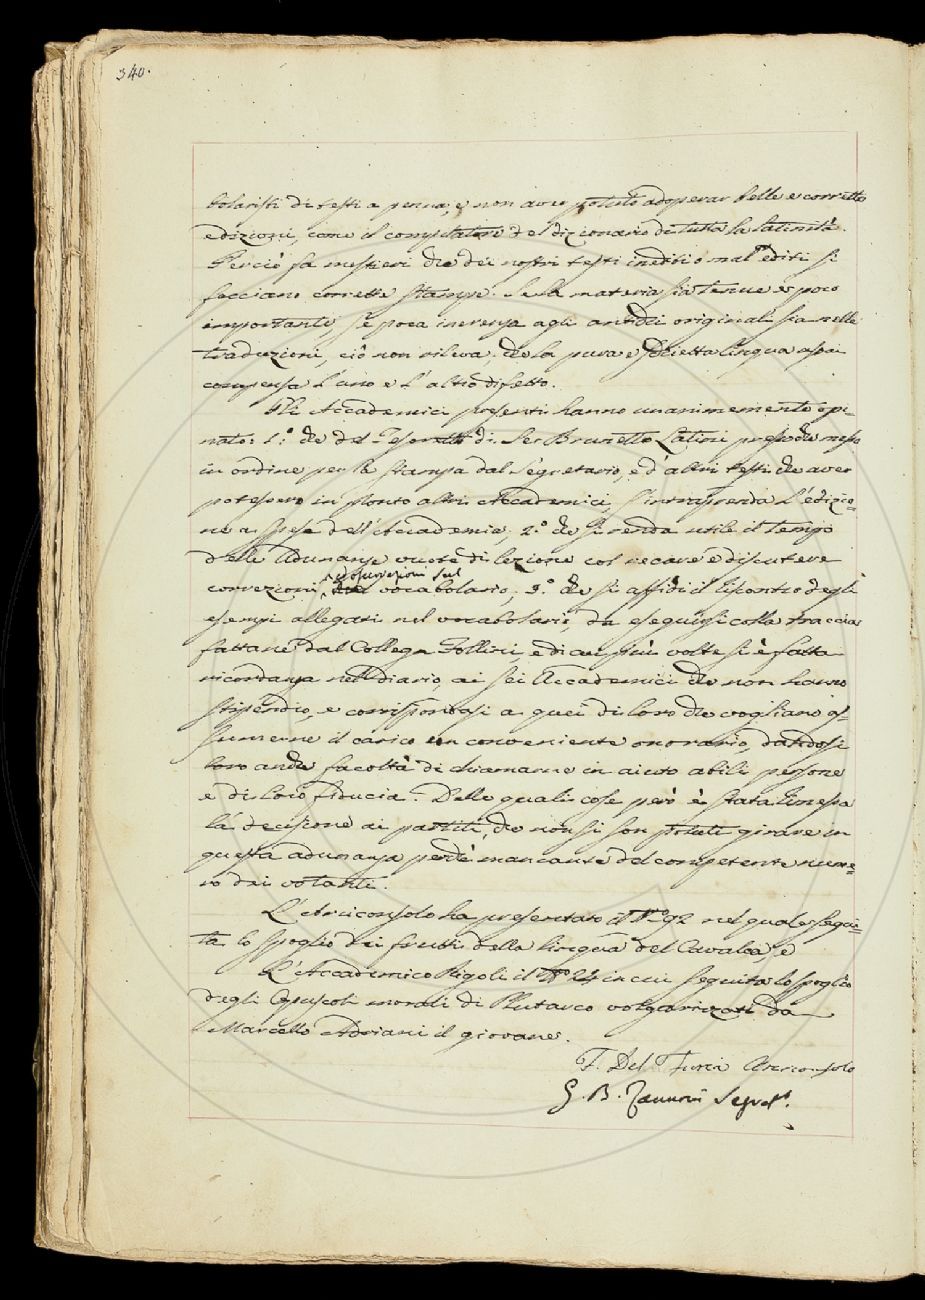 340.
bolaristi di testi a penna, e non aver potuto adoperar belle e corrette
edizioni, come il compilatore del dizionario di tutta la latinità.
Perciò fa mestieri che dei nostri testi inediti o mal editi si
facciano corrette stampe. Se la materia sia tenue e poco
importante, se poca inerenza agli antichi originali sia nelle
traduzioni, ciò non rileva, che la pura e schietta lingua assai
compensa l'uno e l'altro difetto.
Gli Accademici presenti hanno unanimemente opi-
nato: 1.° che del Tesoretto di Ser Brunetto Latini presso che messo
in ordine per la stampa dal Segretario, e d'altri testi che aver
potessero in pronto altri Accademici, s'intraprenda l'edizio=
ne a spese dell'Accademia, 2.° che si renda utile il tempo
delle Adunanze vuote di lezione col recare e discutere
correzioni, e osservazioni sul
vocabolario; 3.° che si affidi il riscontro degli
esempi allegati nel vocabolario, da eseguirsi colla traccia
fattane dal Collega Follini, e di cui più volte si è fatta
ricordanza nel diario, ai sei Accademici che non hanno
stipendio, e corrispondasi a quei di loro che vogliano as=
sumerne il carico un conveniente onorario, dandosi
loro anche facoltà di chiamarne in aiuto abili persone
e di loro fiducia. Delle quali cose però è stata rimessa
la decisione ai partiti, che non si son potuti girare in
questa adunanza perchè mancante del competente nume=
ro dei votanti.
L'Arciconsolo ha presentato il N.° 92 nel quale segui=
ta lo spoglio dei frutti della lingua del Cavalca, e
L'Accademico Rigoli il N.° 24 in cui seguita lo spoglio
degli Opuscoli morali di Plutarco volgarizzati da
Marcello Adriani il giovane.
F. Del Furia Arciconsolo
G. B. Zannoni Segret.°